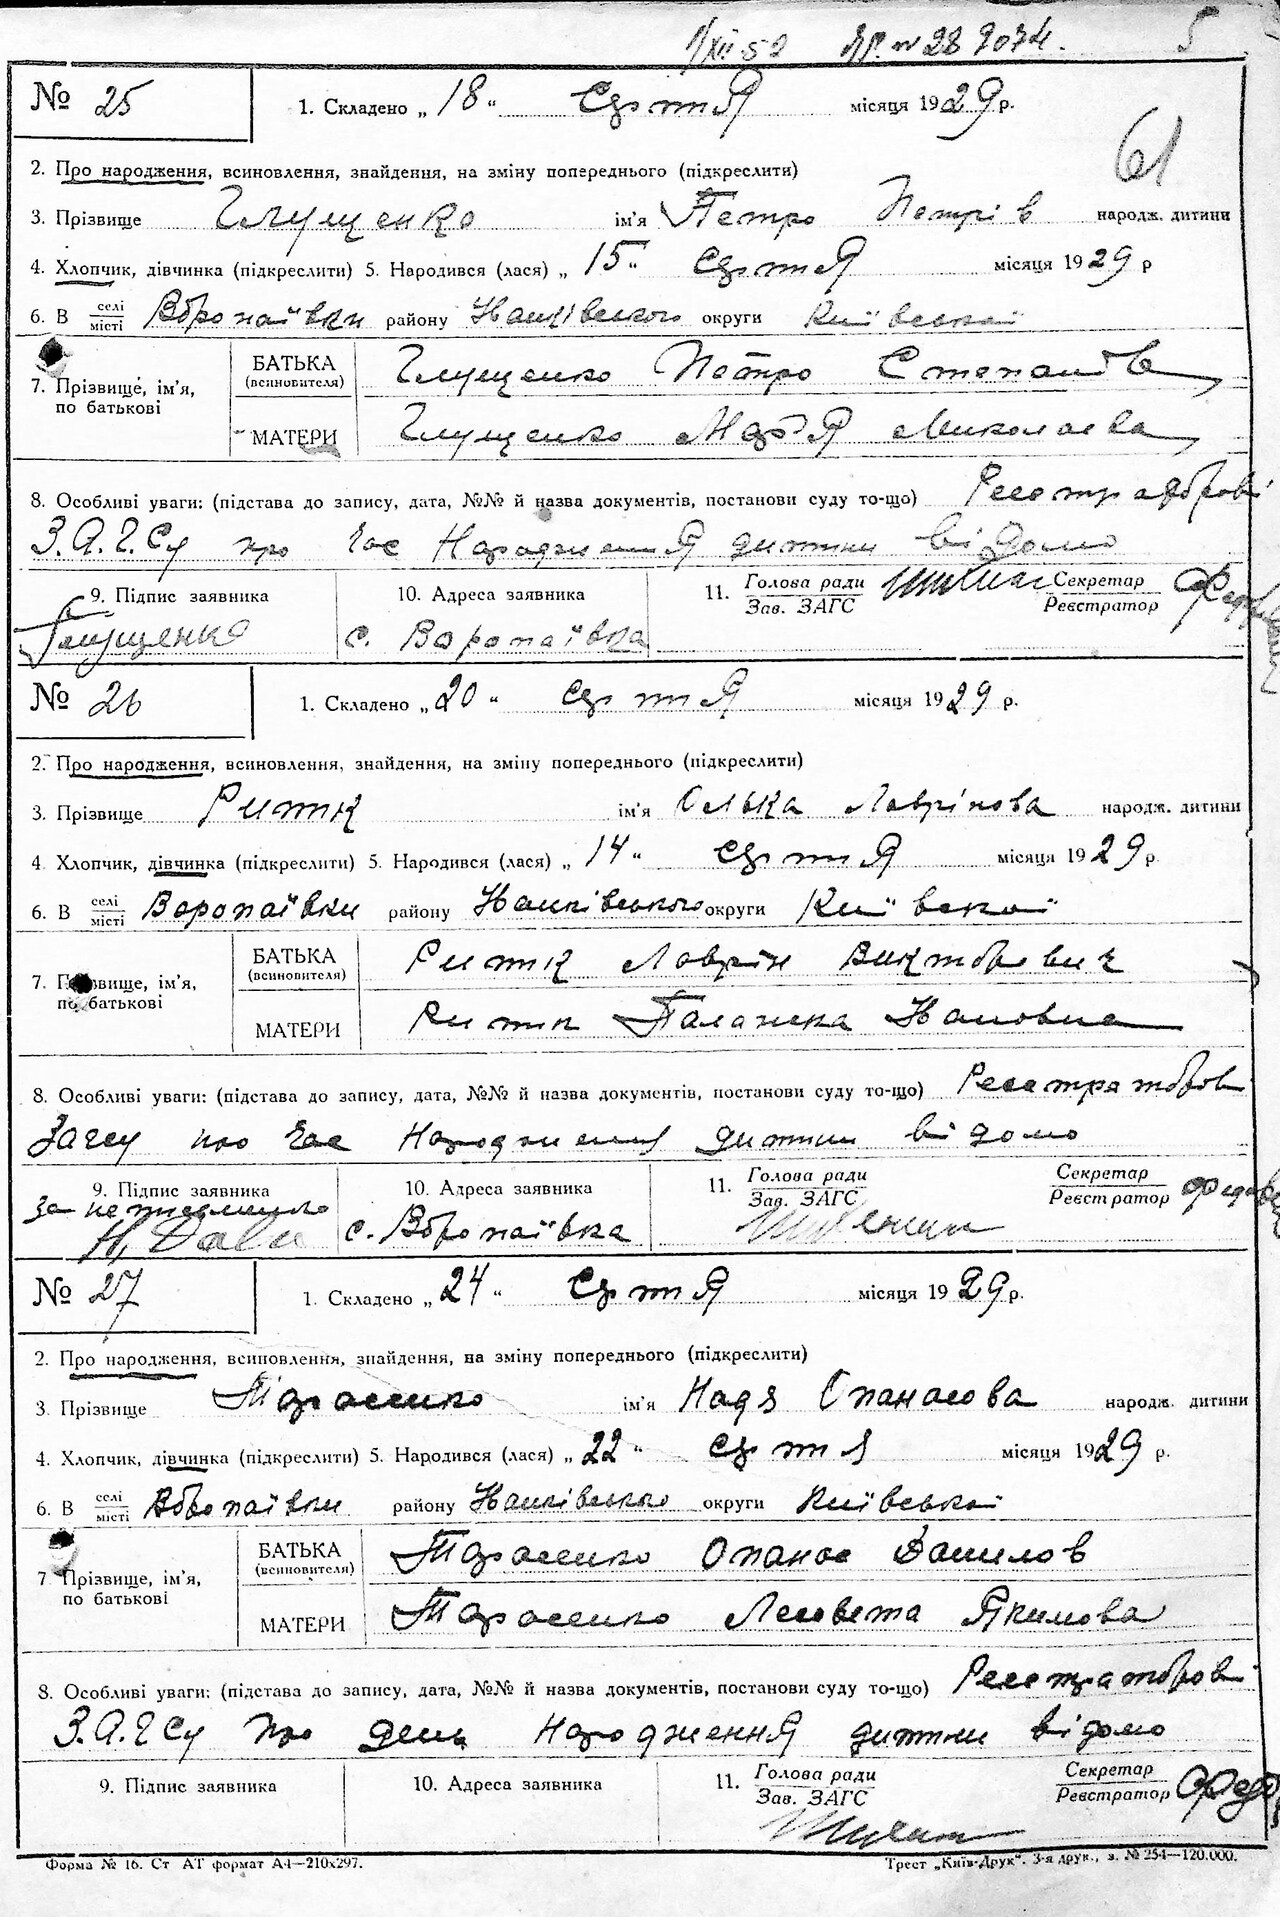 1/XII-52 № 28 9074. 5
№ 25 1. Складено „18“ Сігтя місяця 1929 р.
61
2. Про народження, всиновлення, знайдення, на зміну попереднього (підкреслити)
3. Прізвище Глущенко ім'я Петро Петрів народж. дитини
4. Хлопчик, дівчинка (підкреслити) 5. Народився (лася) „15“ місяця 1929 р
6. В селі/місті Воропаївки району округи Київської
7. Прізвище, ім'я, по батькові
БАТЬКА (всиновителя) Глущенко Петро Степанов
МАТЕРИ Глущенко Мар'я Миколаева
8. Особливі уваги: (підстава до запису, дата, №№ й назва документів, постанови суду то-що) Реєстраторові
З.А.Г.Су про час Народження дитини відомо
9. Підпис заявника 10. Адреса заявника 11. Голова ради Зав. ЗАГС Секретар Реєстратор
Глущенко с. Воропаївка
№ 26 1. Складено „20“ місяця 1929 р.
2. Про народження, всиновлення, знайдення, на зміну попереднього (підкреслити)
3. Прізвище Ритк ім'я Олька Лаврінова народж. дитини
4. Хлопчик, дівчинка (підкреслити) 5. Народився (лася) „14“ місяця 1929 р.
6. В селі/місті Воропаївки району округи Київської
7. Прізвище, ім'я, по батькові
БАТЬКА (всиновителя) Ритк Лаврін Викторович
МАТЕРИ Ритк Палажка
8. Особливі уваги: (підстава до запису, дата, №№ й назва документів, постанови суду то-що) Реєстраторові
Загсу про час Народження дитини відомо
9. Підпис заявника 10. Адреса заявника 11. Голова ради Зав. ЗАГС Секретар Реєстратор
За неписьменного с. Воропаївка
№ 27 1. Складено „24“ місяця 1929 р.
2. Про народження, всиновлення, знайдення, на зміну попереднього (підкреслити)
3. Прізвище Тарасенко ім'я Надя Опанасова народж. дитини
4. Хлопчик, дівчинка (підкреслити) 5. Народився (лася) „22“ місяця 1929 р.
6. В селі/місті Воропаївки району округи Київської
7 Прізвище, ім'я, по батькові
БАТЬКА (всиновителя) Тарасенко Опанас Данилов
МАТЕРИ Тарасенко Лесовета Якимова
8. Особливі уваги: (підстава до запису, дата, №№ й назва документів, постанови суду то-що) Реєстраторові
З.А.Г.Су про день народження дитини відомо
9. Підпис заявника 10. Адреса заявника 11. Голова ради Зав. ЗАГС Секретар Реєстратор
Форма № 16. Ст АТ формат А4—210х297. Трест „Київ-Друк“. 3-я друк., з. № 254—120.000.